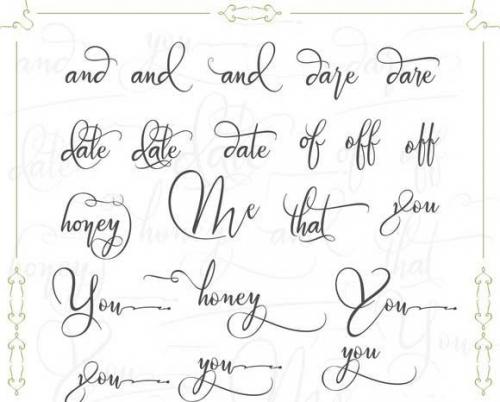 and and and dare dare
date date date of off off
honey Me that you
You honey You
you you you